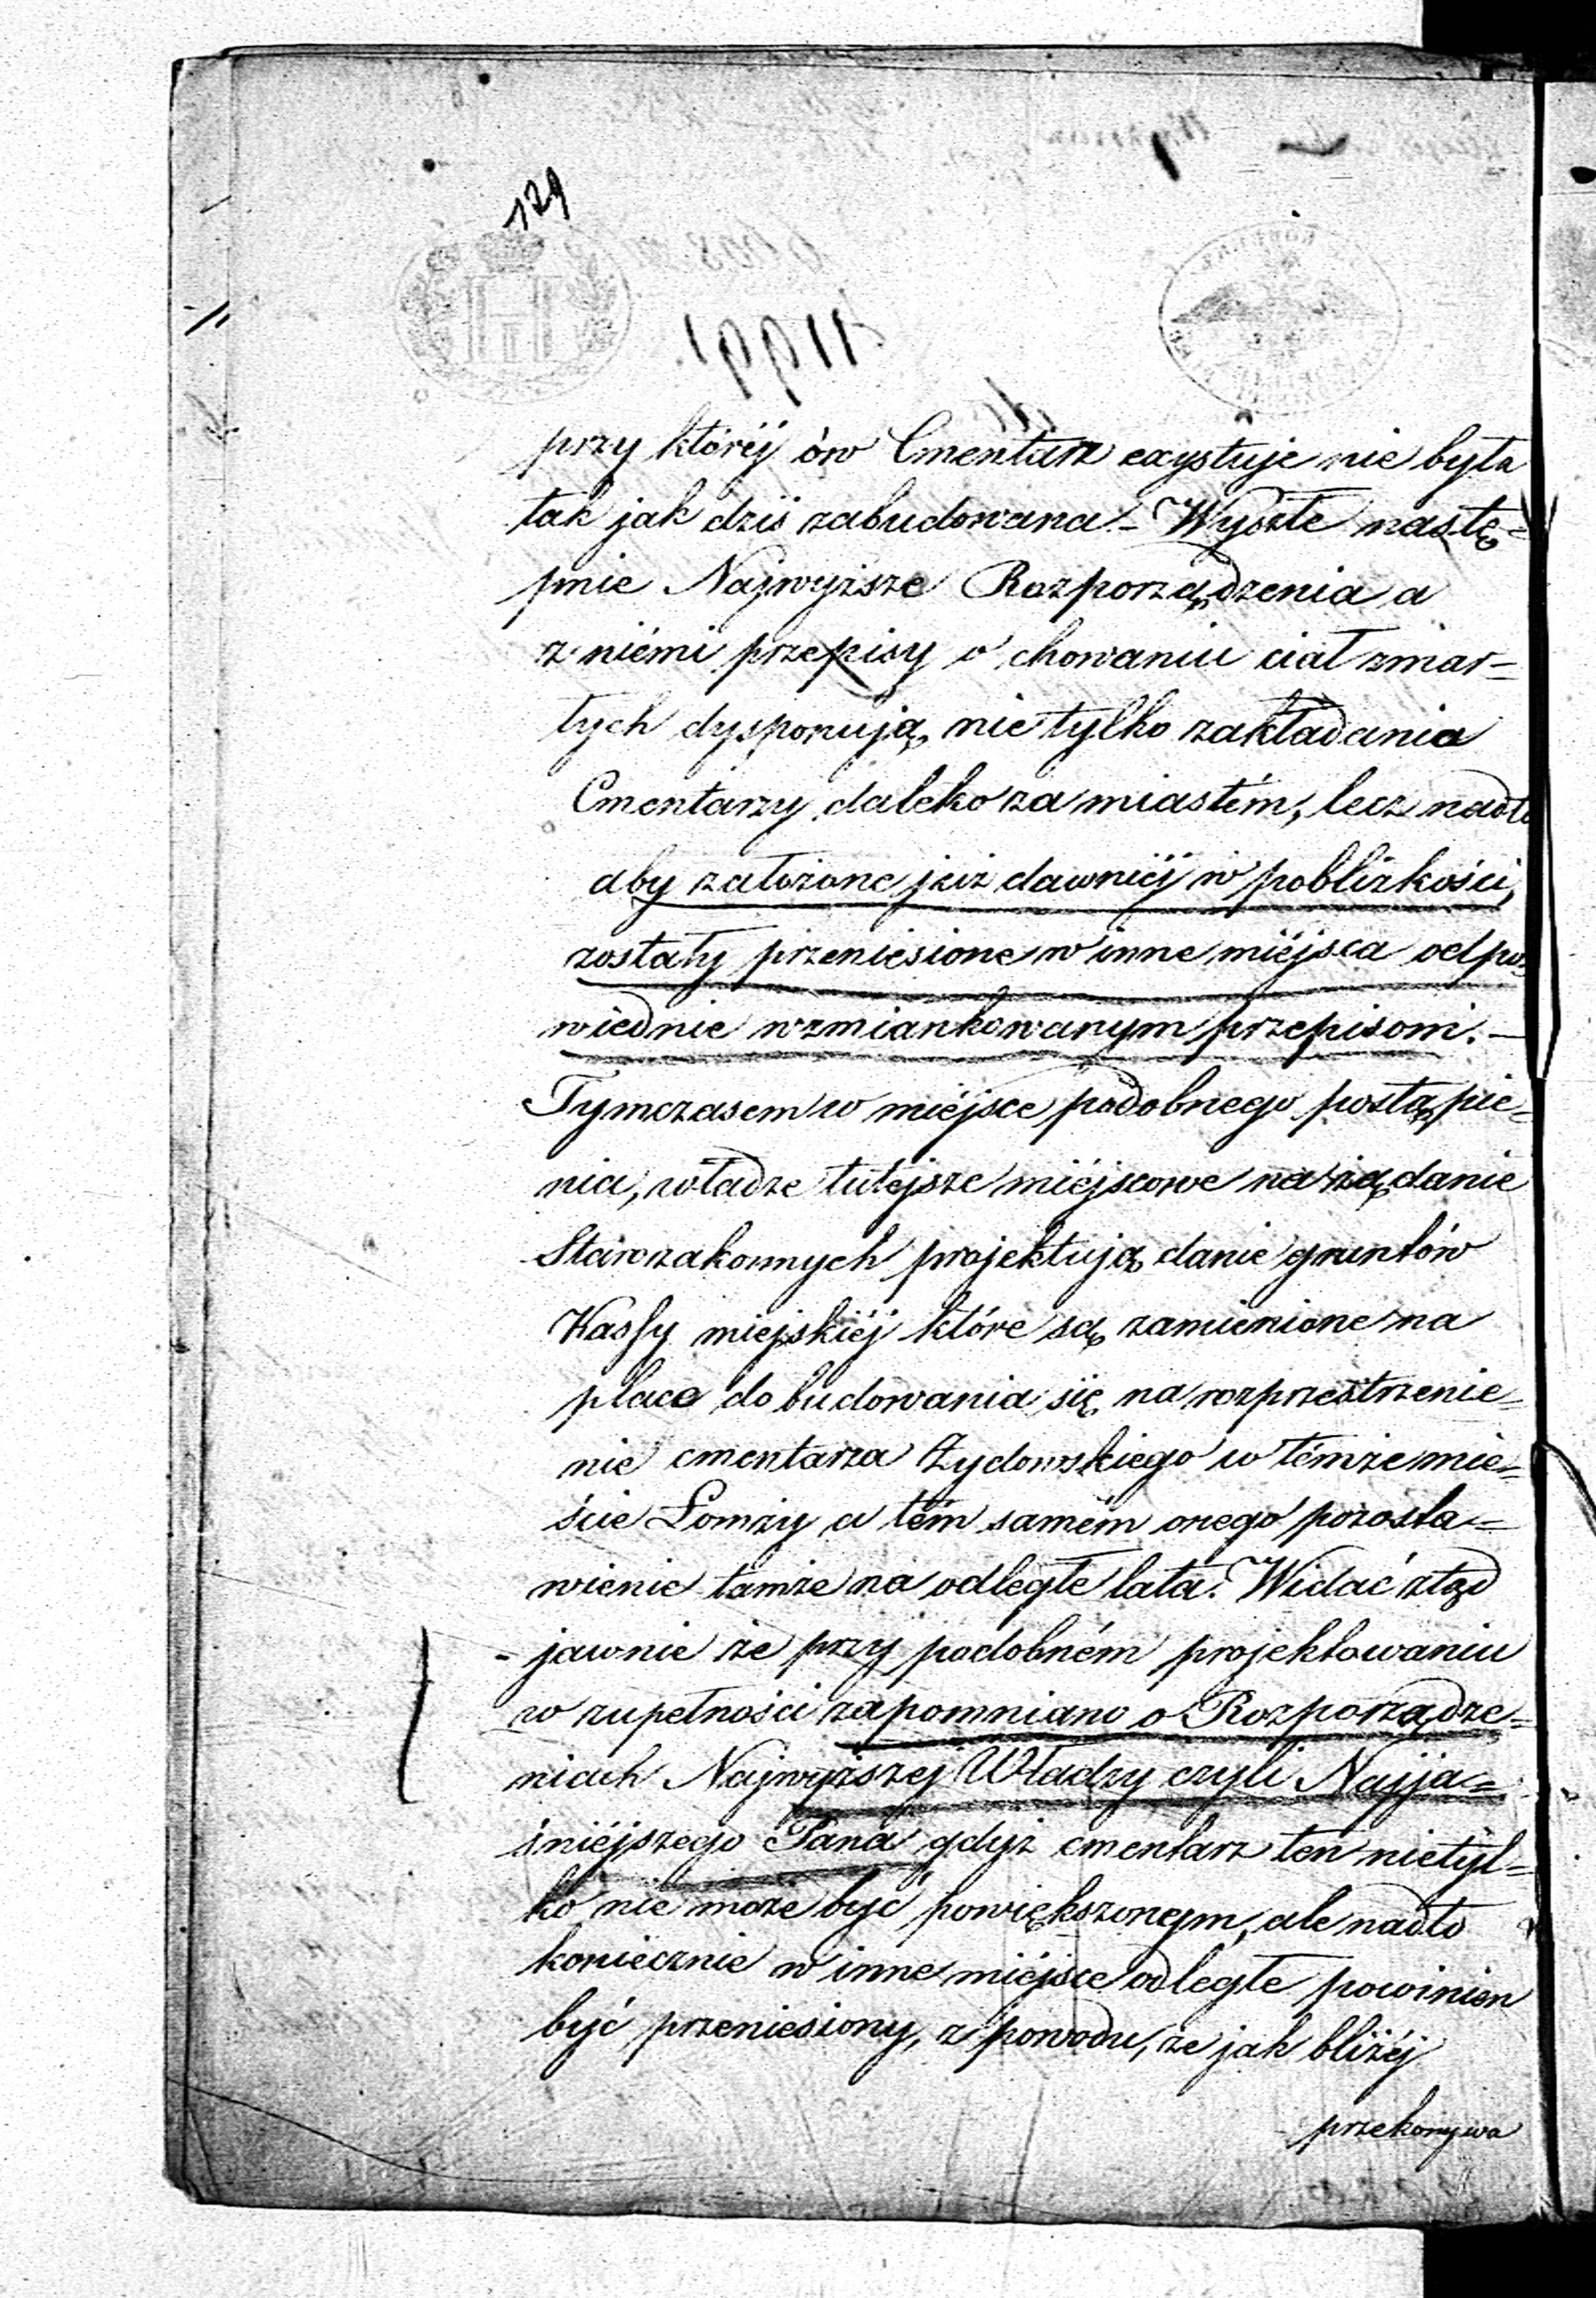 129
11991
przy któréj ów Cmentarz exystuje nie była
tak jak dziś zabudowana – Wyszłe nastę=
pnie Najwyższe Rozporządzenia a
z niémi przepisy o chowaniu ciał zmar=
łych dysponują, nie tylko zakładania
Cmentarzy daleko za miastém, lecz nadto
aby założone już dawniéj w poblizkości,
zostały przeniesione w inne miéjsca odpo=
wiednie wzmiankowanym przepisom. –
Tymczasem w miéjsce podobnego postąpie=
nia, władze tutejsze miéjscowe na żądanie
Starozakonnych projektują danie gruntów
Kassy miejskiéj które są zamienione na
place do budowania się na rozprzestrzenie=
nie cmentarza Żydowskiego w témże mie=
ście Łomży a tém samém onego pozosta=
wienie tamże na odległe lata. Widać ztąd
jawnie że przy podobném projektowaniu
w zupełności zapomniano o Rozporządze=
niach Najwyższej Władzy czyli Najja=
śniéjszego Pana gdyż cmentarz ten nietyl=
ko nie może być powiększonym, ale nadto
koniecznie w inne miéjsce odległe powinien
być przeniesiony, z powodu, że jak bliżéj
przekonywa